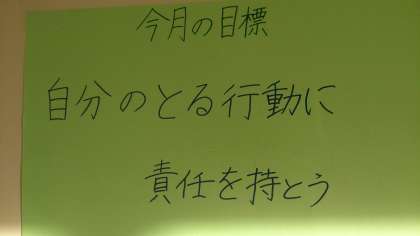 今月の目標
自分のとる行動に
責任を持とう